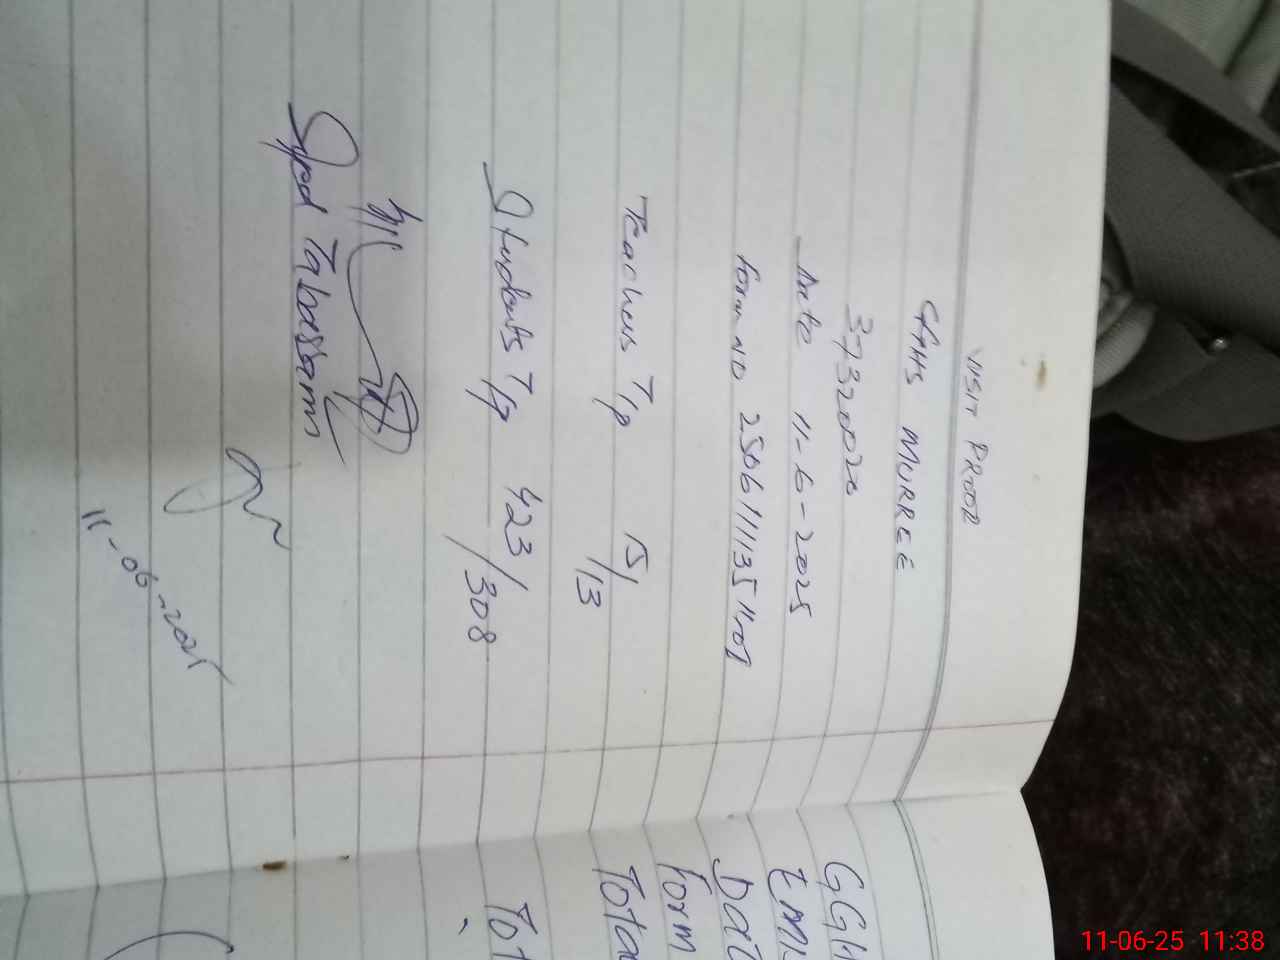 VISIT PROOF
GHHS MURREE
37320020
Date 11-6-2025
form NO
Teachers T/p 15/13
Students T/p 423/308
Syed Tabassam
11-06-2025
GGH
EMI
Dat
form
Tota
Tot
11-06-25 11:38